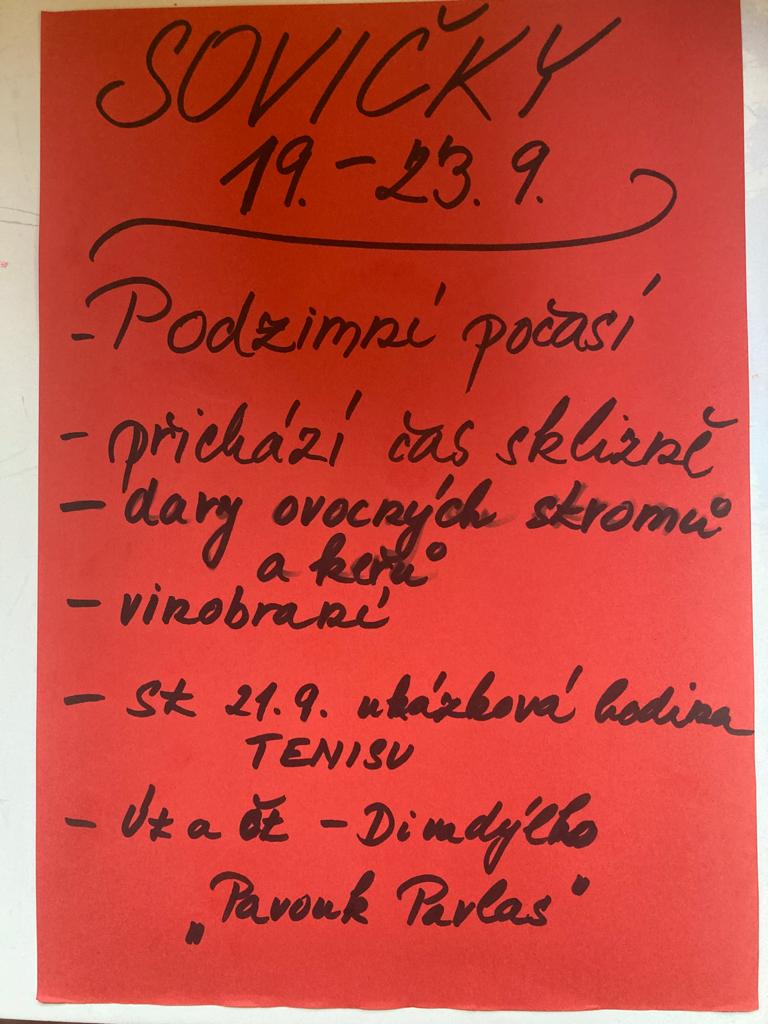 SOVIČKY
19. - 23. 9.
- Podzimní počasí
- přichází čas sklizně
- dary ovocných stromů
a keřů
- vinobraní
- st 21.9. ukázková hodina
TENISU
- Út a čt - Dimdýlko
„Pavouk Pavlas"